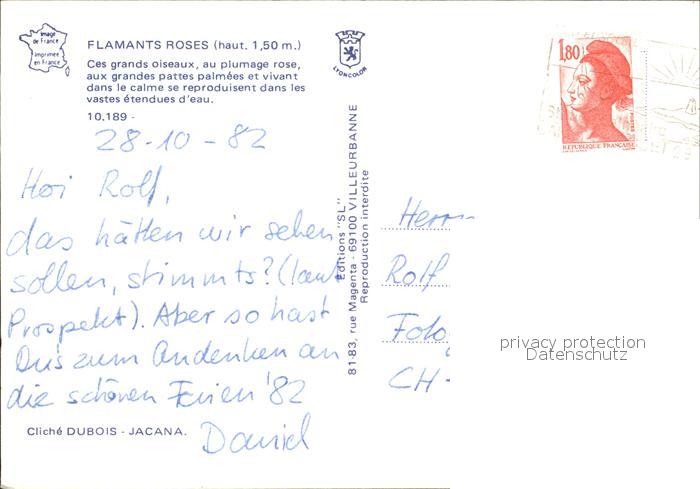 Image
de France
Imprimée
en France
FLAMANTS ROSES (haut. 1,50 m.)
Ces grands oiseaux, au plumage rose,
aux grandes pattes palmées et vivant
dans le calme se reproduisent dans les
vastes étendues d'eau.
10.189 -
LYONCOLOR
28-10-82
Hoi Rolf,
das hätten wir sehen
sollen, stimmts? (laut
Prospekt). Aber so hast
Du's zum Andenken an
die schönen Ferien '82
Daniel
Cliché DUBOIS - JACANA.
Editions "SL"
81-83, rue Magenta - 69100 VILLEURBANNE
Reproduction interdite
1,80
POSTES
REPUBLIQUE FRANÇAISE
Herrn
Rolf
Foto
CH-
privacy protection
Datenschutz